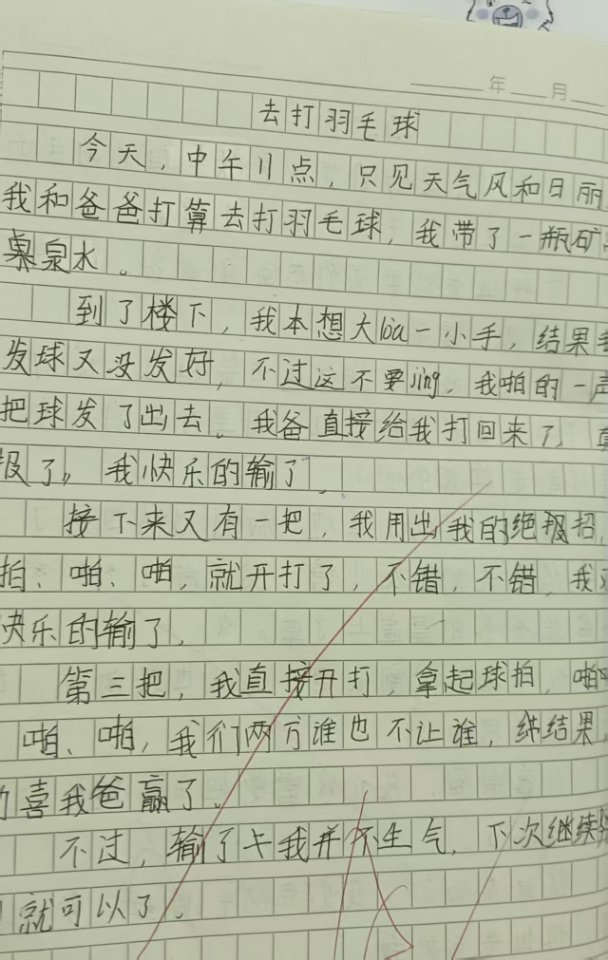 年 月
去打羽毛球
今天，中午11点，只见天气风和日丽
我和爸爸打算去打羽毛球，我带了一瓶矿
泉水。
到了楼下，我本想大lòu一小手，结果
发球又没发好，不过这不要jǐng，我啪的一声
把球发了出去。我爸直接给我打回来了，
了。我快乐的输了。
接下来又有一把，我用出我的绝报招，
拍、啪、啪，就开打了，不错，不错，我
快乐的输了，
第三把，我直接开打，拿起球拍，啪
啪、啪，我们两方谁也不让谁，结果，
喜我爸赢了。
不过，输了我并不生气，下次继续
就可以了，